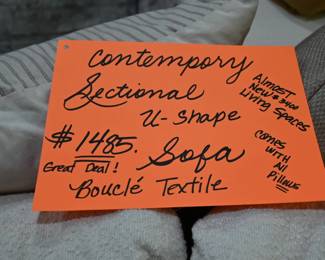 Contempory
Sectional
U-Shape
$1485.
Great Deal!
Sofa
Bouclé Textile
Almost
New $3400
Living Spaces
Comes
With
All
Pillows